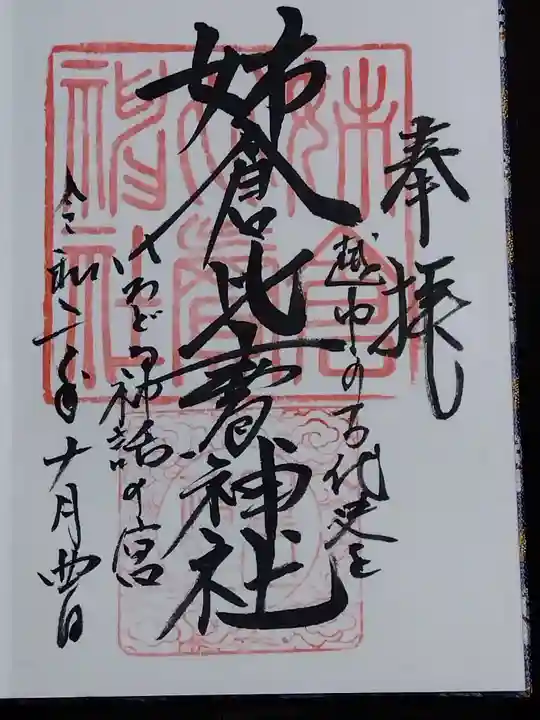 奉拝
越中の古代史を
姉倉比賣神社
いろどる神話の宮
令和二年十月四日
姉倉比賣神社